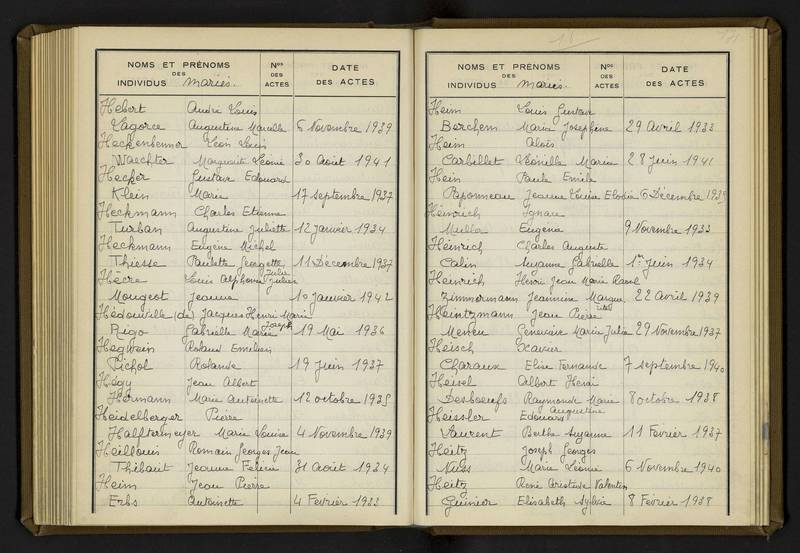 NOMS ET PRÉNOMS
DES
INDIVIDUS mariés.
Nos
DES
ACTES
DATE
DES ACTES
Hébert André Louis
Lagorce Augustine Marcelle 6 Novembre 1939
Heckenbenner Léon Louis
Waechter Marguerite Léonie 30 Août 1941
Hecker Gustave Edouard
Klein Marie 17 septembre 1937
Heckmann Charles Etienne
Turban Augustine Juliette 12 janvier 1934
Heckmann Eugène Michel
Thiesse Paulette Georgette 11 Décembre 1937
Hècre Louis Alphonse Julien
Mougeot Jeanne Julie 10 janvier 1942
Hédouville (de) Jacques Henri Marie Joseph
Rigo Gabrielle Marie 19 Mai 1936
Hegwein Roland Emilien
Pichol Rolande 19 juin 1937
Hégy Jean Albert
Hermann Marie Antoinette 12 octobre 1935
Heidelberger Pierre
Halftermeyer Marie Louise 4 Novembre 1939
Heillouis Romain Georges Jean
Thibaut Jeanne Félicie 31 Août 1934
Heim Jean Pierre
Erbs Antoinette 4 Février 1933
NOMS ET PRÉNOMS
DES
INDIVIDUS mariés.
Nos
DES
ACTES
DATE
DES ACTES
Heim Louis Gustave
Berchem Maria Joséphine 29 Avril 1933
Heim Aloïs
Carbillet Léonille Maria 28 juin 1941
Hein Paul Emile
Paponneau Jeanne Louise Elodie 6 Décembre 1939
Heinrich Ignace
Mulla Eugénie 9 Novembre 1933
Heinrich Charles Auguste
Calin Suzanne Gabrielle 1er juin 1934
Heinrich Henri Jean Marie Raoul
Zimmermann Jeannine Margue rite 22 Avril 1939
Heintzmann Jean Pierre
Meneu Geneviève Marie Julie 29 Novembre 1937
Heisch Xavier
Charaux Elise Fernande 7 septembre 1940
Heisel Albert Henri
Desboeufs Raymonde Marie Augustine 8 octobre 1938
Heissler Edouard
Laurent Berthe Suzanne 11 Février 1937
Heitz Joseph Georges
Nulès Marie Léonie 6 Novembre 1940
Heitz René Aristide Valentin
Guinier Elisabeth Sylvia 8 Février 1938